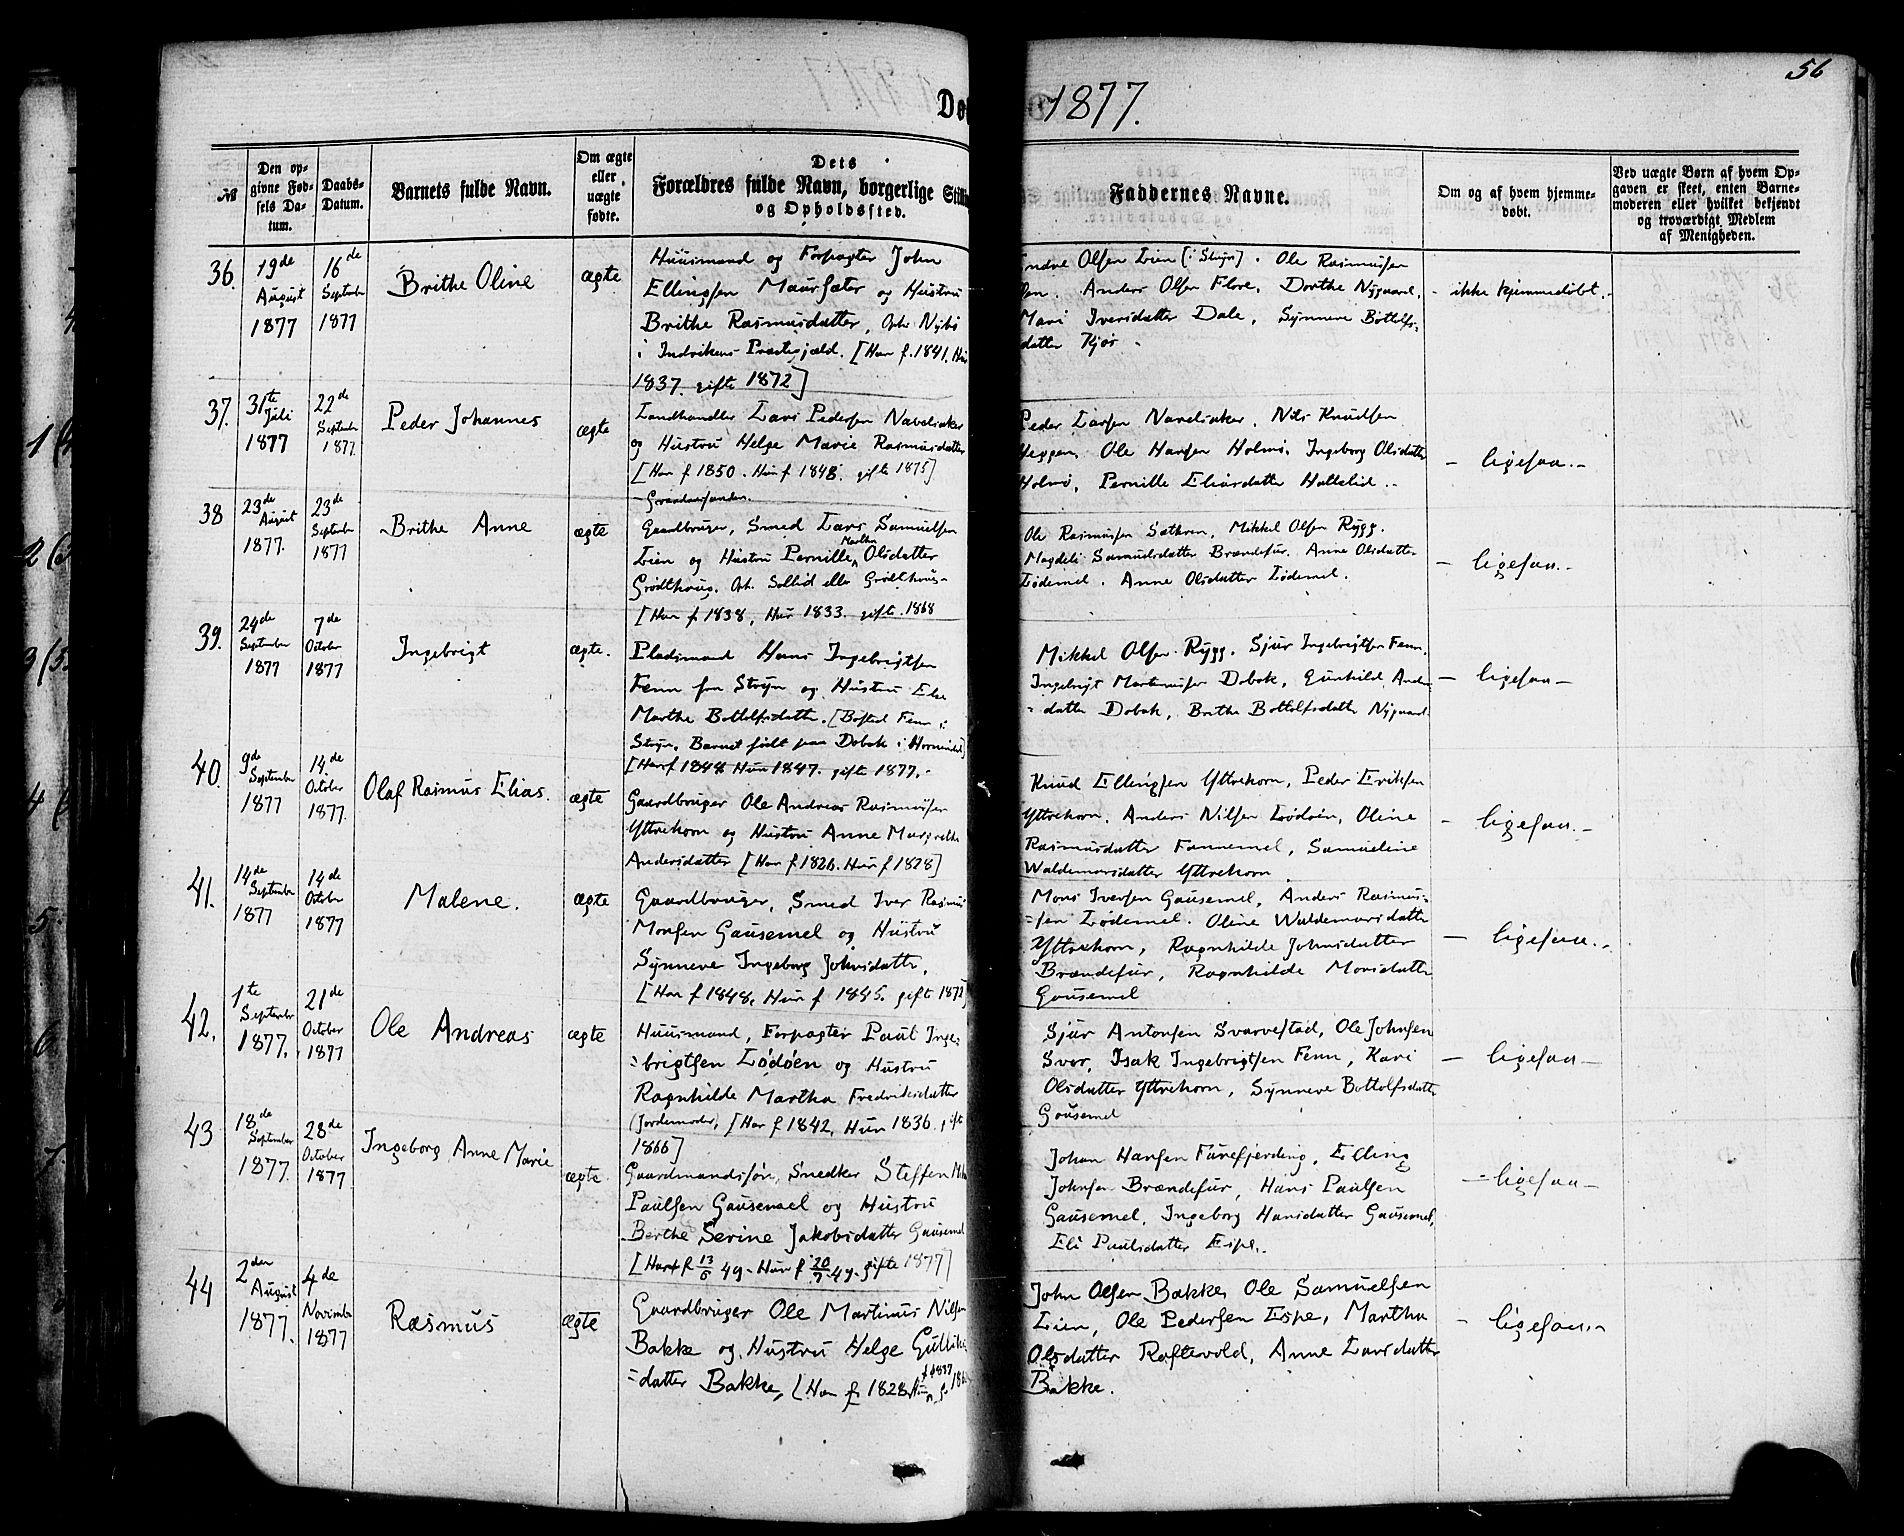 56
Dø
1877.
№
Den op-
givne Fød-
sels Da-
tum.
Daabs-
Datum.
Barnets fulde Navn.
Om ægte
eller
uægte
fødte.
Dets
Forældres fulde Navn, borgerlige Stilli
og Opholdssted.
Faddernes Navne.
Om og af hvem hjemme-
døbt.
Ved uægte Børn af hvem Op-
gaven er skeet, enten Barne-
moderen eller hvilket bekjendt
og troværdigt Medlem
af Menigheden.
36.
19de
August
1877
16de
September
1877
Brithe Oline
ægte
Huusmand og Forpagter John
Ellingsen Maursæter og Hustru
Brithe Rasmusdatter, Oph. Nybø
i Indvikens Præstegjæld. [Han f. 1841. Hun
1837. gifte 1872]
Olsen Lien [i Stryn]. Ole Rasmussen
Anders Olsen Flore, Dorthe Nygaard,
Mari Iversdatter Dale, Synneve Bottolfs-
datter Kjøs.
- ikke hjemmedøbt. -
37.
31te
Juli
1877
22de
September
1877.
Peder Johannes
ægte
Landhandler Lars Pedersen Navelsaker
og Hustru Helge Marie Rasmusdatter
[Han f 1850. Hun f 1848. gifte 1875]
Peder Larsen Navelsaker. Nils Knudsen
Heggen, Ole Hansen Holmø, Ingeborg Olsdatter
Holmø, Pernille Eliasdatter Hallelid.
- ligesaa. -
38
23de
August
1877.
23de
September
1877
Brithe Anne
ægte
Gaardbruger, Smed Lars Samuelsen
Lien og Hustru Pernille Martha Olsdatter
Grodthoug. Oph. Sollid eller Grodthoug.
[Han f 1838, Hun 1833. gifte 1868
Ole Rasmussen Sætren, Mikkel Olsen Rygg.
Magdeli Samuelsdatter Brændefur. Anne Olsdatter
Lødemel. Anne Olsdatter Lødemel.
- ligesaa. -
39.
24de
September
1877
7de
October
1877
Ingebrigt
ægte.
Pladsmand Hans Ingebrigtsen
Fenn fra Stryn og Hustru Else
Marthe Bottolfsdatter. [Bosted Fenn i
Stryn. Barnet født paa Dobak i Hornindal]
[Han f 1848 Hun 1847. gifte 1877.-
Mikkel Olsen Rygg. Sjur Ingebrigtsen Fenn.
Ingebrigt Martinusen Dobak, Gunhild Anders-
datter Dobak, Brithe Bottolfsdatter Nygaard
- ligesaa -
40.
9de
September
1877
14de
October
1877.
Olaf Rasmus Elias.
ægte
Gaardbruger Ole Andreas Rasmussen
Yttrehorn og Hustru Anne Margrethe
Andersdatter [Han f 1826. Hun f 1828]
Knud Ellingsen Yttrehorn, Peder Eriksen
Yttrehorn. Anders Nilsen Lødøen, Oline
Rasmusdatter Fannemel, Samueline
Waldemarsdatter Yttrehorn
- ligesaa. -
41.
14de
September
1877
14de
October
1877
Malene.
ægte
Gaardbruger, Smed Iver Rasmus
Monsen Gausemel og Hustru
Synneve Ingeborg Johnsdatter,
[Han f 1848, Hun f 1845. gift 1872]
Mons Iversen Gausemel, Anders Rasmus-
sen Lødemel. Oline Waldemarsdatter
Yttrehorn, Ragnhilde Johnsdatter
Brændefur, Ragnhilde Monsdatter
Gausemel
- ligesaa. -
42.
1te
September
1877.
21de
October
1877
Ole Andreas
ægte
Huusmand, Forpagter Paul Inge-
brigtsen Lødøen og Hustru
Ragnhilde Martha Fredriksdatter
(Jordemoder) [Han f 1842, Hun 1836. gift
1866]
Sjur Antonsen Svarvestad, Ole Johnsen
Svor, Isak Ingebrigtsen Fenn, Kari
Olsdatter Yttrehorn, Synneve Bottolfsdatter
Gausemel
- ligesaa -
43
18de
September
1877.
28de
October
1877.
Ingeborg Anne Marie
ægte.
Gaardmandssøn, Snedker Steffen
Paulsen Gausemel og Hustru
Berthe Serine Jakobsdatter Gausemel
[Han f 13/6 49 - Hun f 20/7 49. gifte 1877]
Johan Hansen Furefjerding, Elling
Johnsen Brændefur, Hans Paulsen
Gausemel, Ingeborg Hansdatter Gausemel,
Eli Paulsdatter Espe.
- ligesaa -
44
2den
August
1877.
4de
November
1877
Rasmus
ægte
Gaardbruger Ole Martinus Nilsen
Bakke og Hustru Helge Gulliks
-datter Bakke, [Han f 1828. Hun f 1837
John Olsen Bakke, Ole Samuelsen
Lien, Ole Pedersen Espe, Martha
Olsdatter Raftevold, Anne Larsdatter
Bakke.
- ligesaa. -